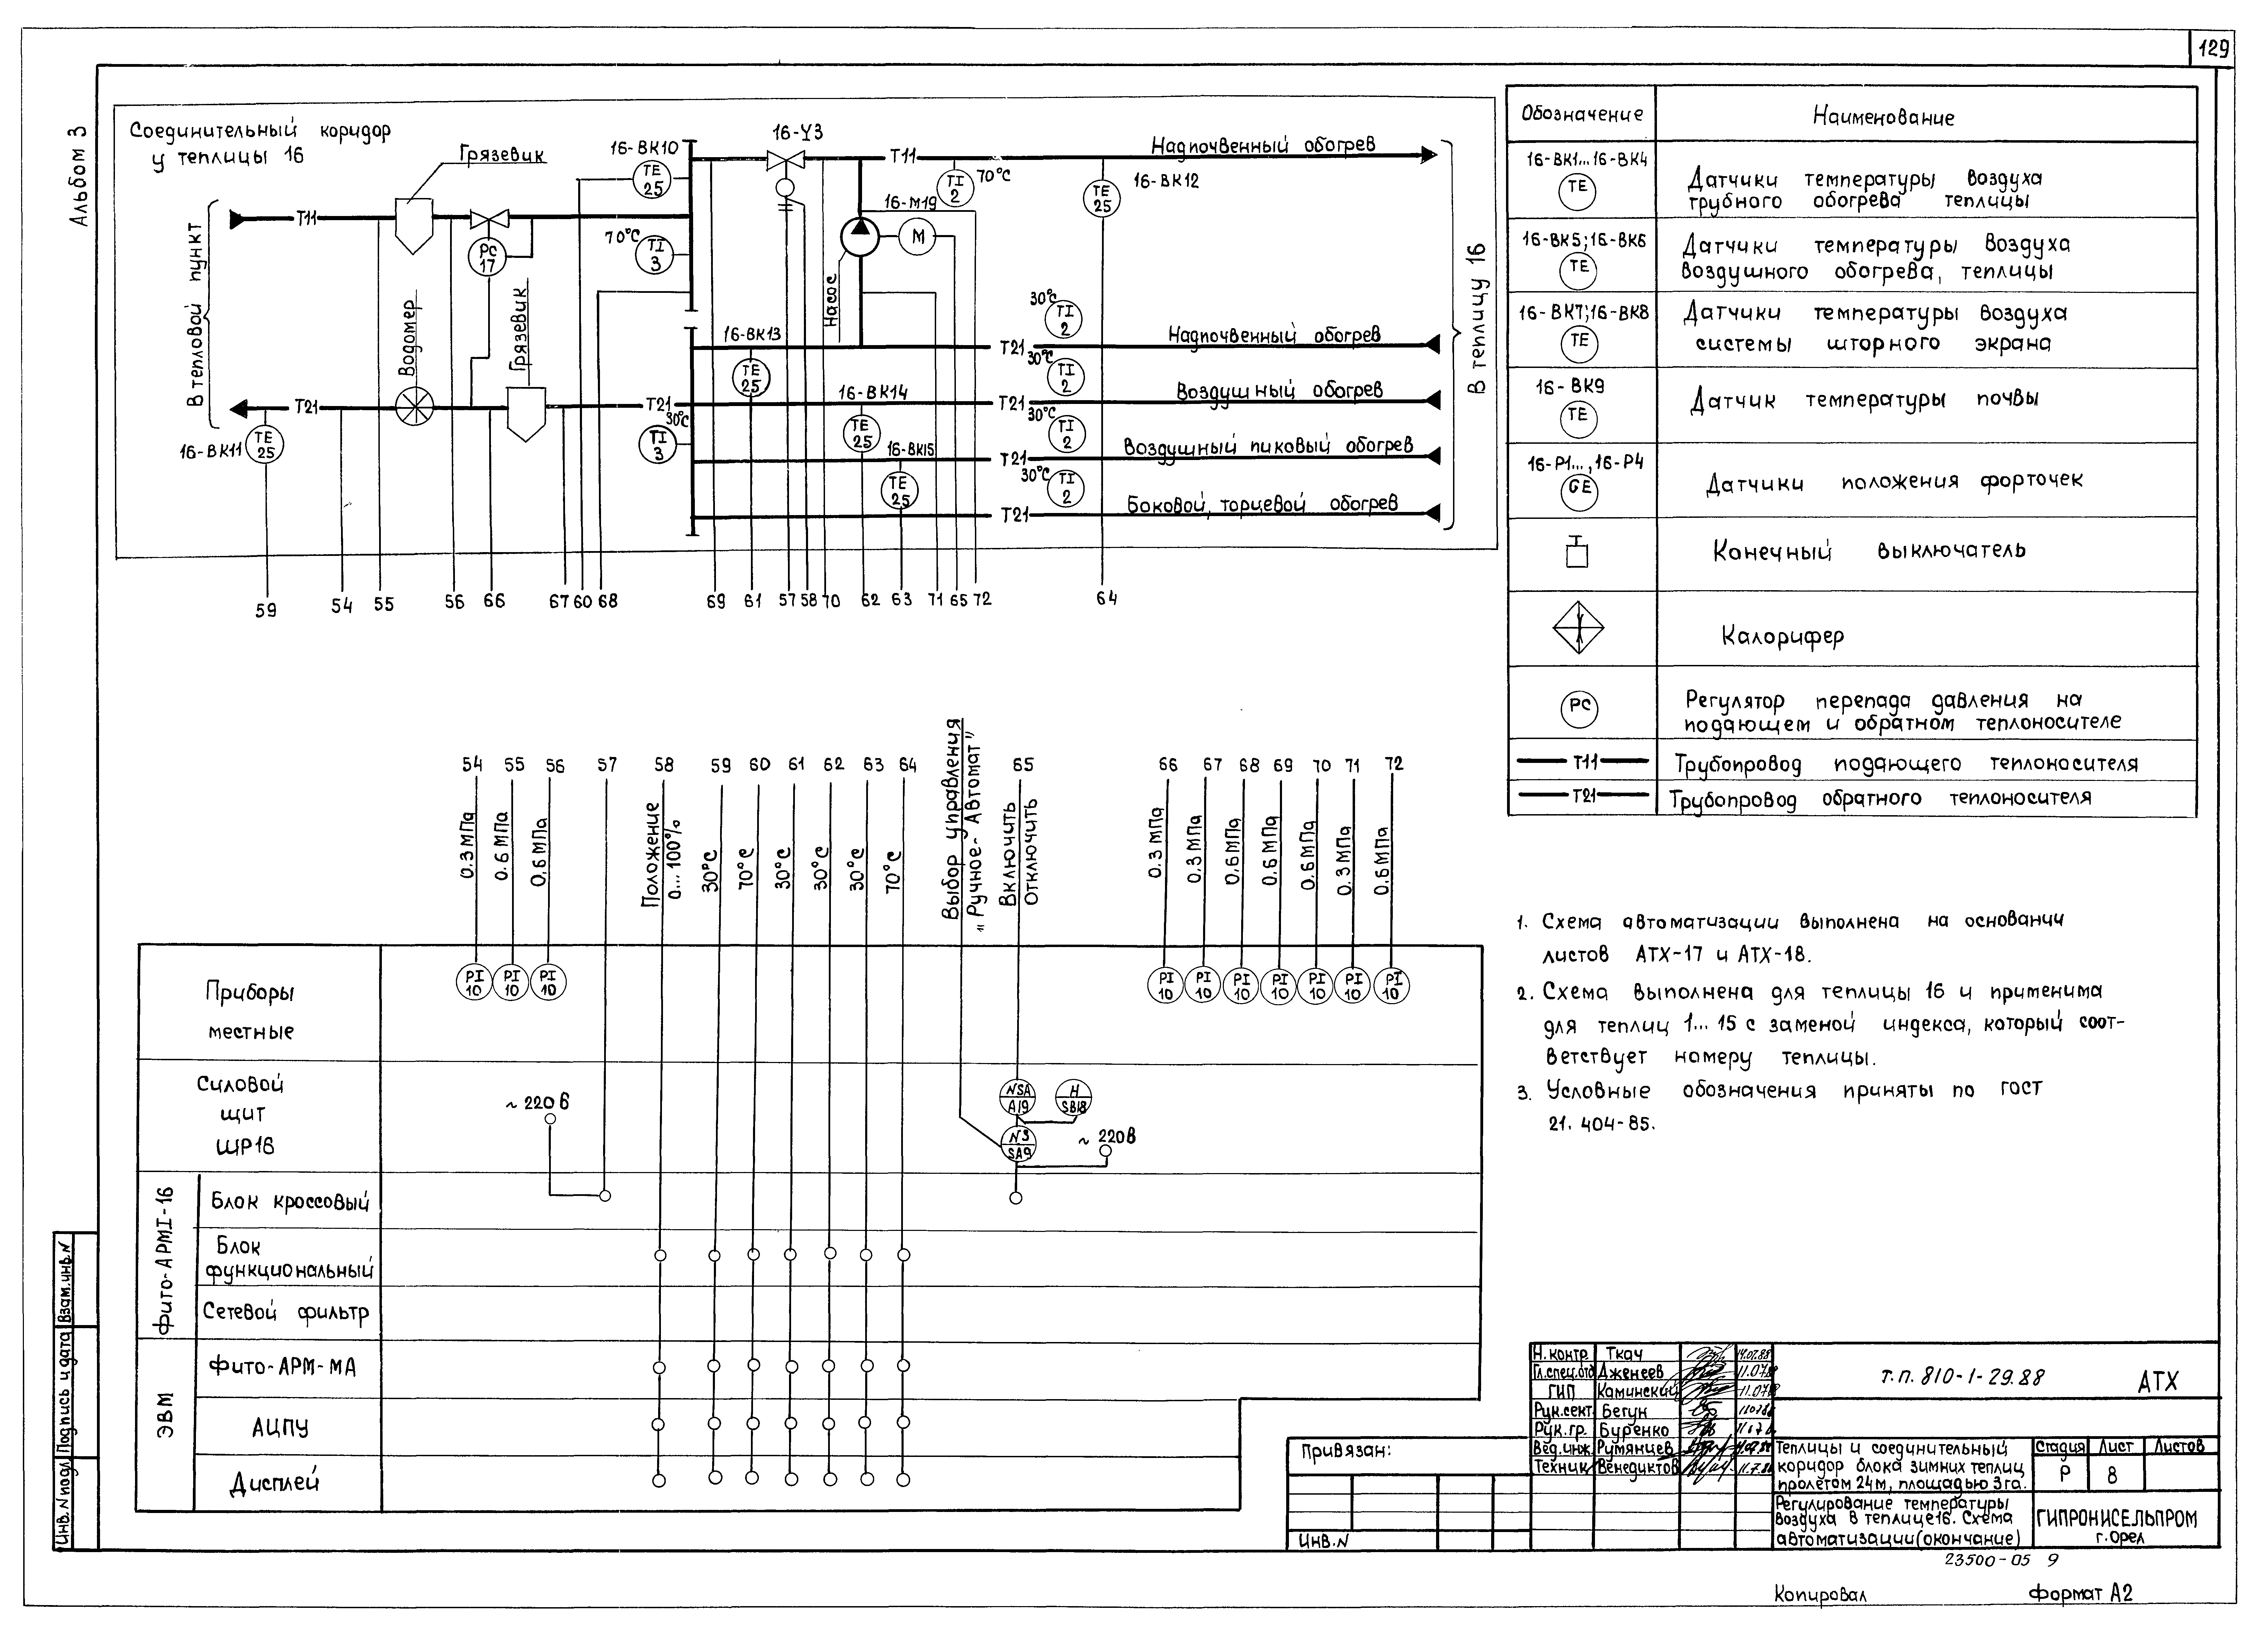 129
Альбом 3
Соединительный коридор
у теплицы 16
Грязевик
16-ВК10
TE
25
16-У3
Т11
Надпочвенный обогрев
TI
2
70°С
TE
25
16-ВК12
16-М19
М
Т11
РС
17
70°С
TI
3
Насос
В тепловой пункт
Водомер
Грязевик
В теплицу 16
30°С
TI
2
16-ВК13
TE
25
Т21
Надпочвенный обогрев
30°С
TI
2
Т21
Т21
30°С
TI
3
16-ВК14
TE
25
Т21
Воздушный обогрев
30°С
TI
2
16-ВК11
TE
25
16-ВК15
TE
25
Т21
Воздушный пиковый обогрев
30°С
TI
2
Т21
Боковой, торцевой обогрев
59 54 55 56 66 67 60 68 69 61 57 58 70 62 63 71 65 72 64
54 55 56 57 58 59 60 61 62 63 64 65 66 67 68 69 70 71 72
0.3 МПа
0.6 МПа
0,6 МПа
Положение
0...100%
30°С
70°С
30°С
30°С
30°С
70°С
Выбор управления
„Ручное-Автомат"
Включить
Отключить
0.3 МПа
0.3 МПа
0.6 МПа
0.6 МПа
0.6 МПа
0.3 МПа
0.6 МПа
Приборы
местные
PI
10
PI
10
PI
10
PI
10
PI
10
PI
10
PI
10
PI
10
PI
10
PI
10
Силовой
щит
ШР16
~ 220 В
NSA
A19
H
SB18
NS
SA9
~ 220В
Фито-АРМ1-16
Блок кроссовый
Блок
функциональный
Сетевой фильтр
ЭВМ
Фито-АРМ-МА
АЦПУ
Дисплей
Обозначение Наименование
16-ВК1...16-ВК4
TE
Датчики температуры воздуха
трубного обогрева теплицы
16-ВК5;16-ВК6
TE
Датчики температуры воздуха
воздушного обогрева, теплицы
16-ВК7;16-ВК8
TE
Датчики температуры воздуха
системы шторного экрана
16-ВК9
TE
Датчик температуры почвы
16-Р1...,16-Р4
GE
Датчики положения форточек
Конечный выключатель
Калорифер
РС
Регулятор перепада давления на
подающем и обратном теплоносителе
Т11
Трубопровод подающего теплоносителя
Т21
Трубопровод обратного теплоносителя
1. Схема автоматизации выполнена на основании
листов АТХ-17 и АТХ-18.
2. Схема выполнена для теплицы 16 и применима
для теплиц 1...15 с заменой индекса, который соот-
ветствует номеру теплицы.
3. Условные обозначения приняты по ГОСТ
21.404-85.
Инв.N подл. Подпись и дата Взам.инв.N
Привязан:
Инв.N
Н.контр. Ткач 14.07.88
Гл.спец.отд Дженеев 11.07.8
ГИП Каминский 11.07.8
Рук.сект. Бегун
Рук.гр. Буренко
Вед.инж. Румянцев
Техник Венедиктов 11.7.88
т.п. 810-1-29.88 АТХ
Теплицы и соединительный
коридор блока зимних теплиц
пролетом 24м, площадью 3га.
Стадия Лист Листов
Р 8
Регулирование температуры
воздуха в теплице16. Схема
автоматизации(окончание)
ГИПРОНИСЕЛЬПРОМ
г. Орел
23500-05 9
Копировал Формат А2